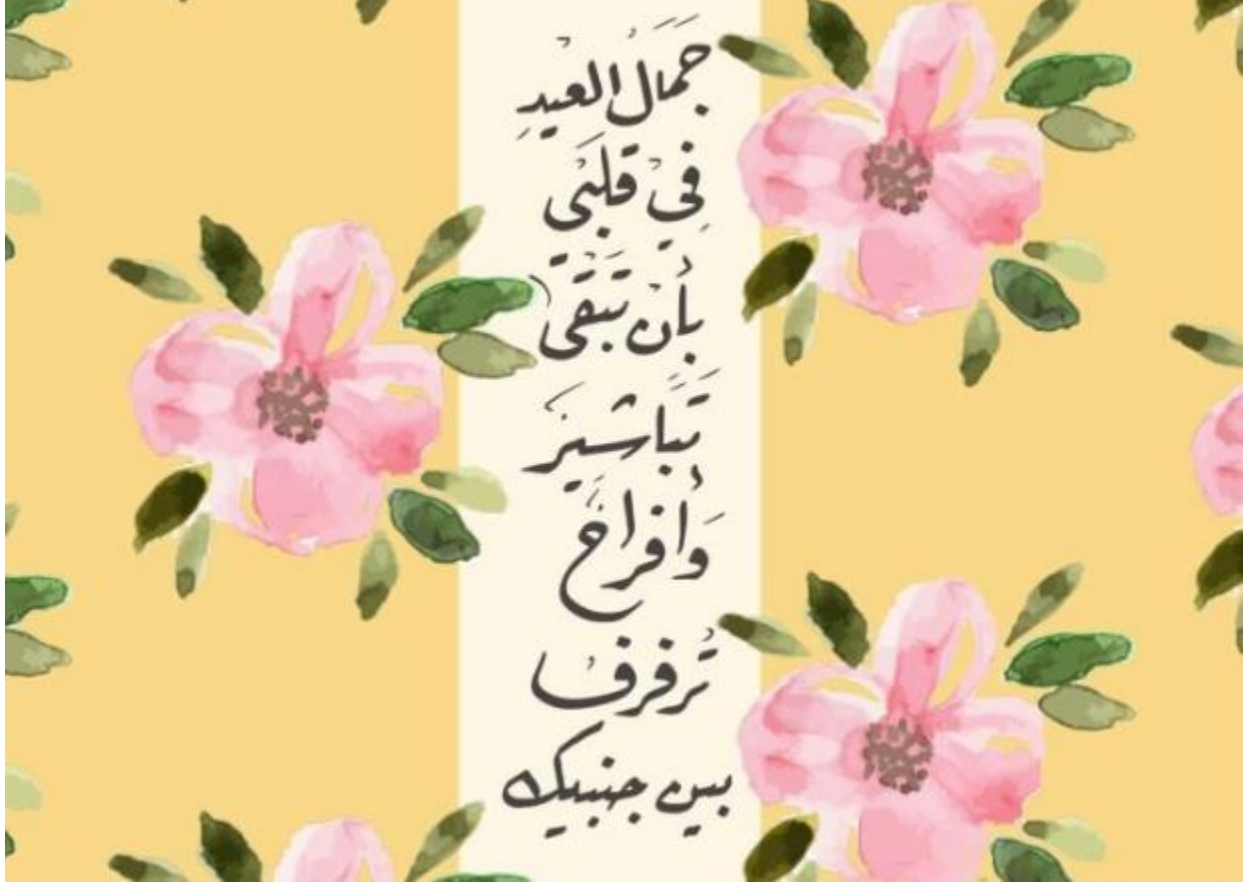 جَمَالُ العِيدِ
فِيْ قَلبَيْ
بأنْ تَبْقَى
تَبَاشيرَ
وَأفراحَ
تُرفرفْ
بين جنبيك